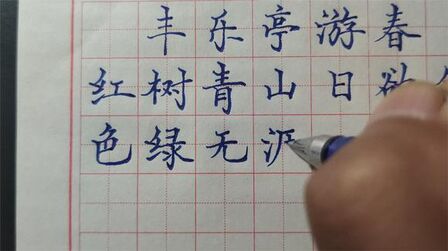 丰乐亭游春
红树青山日欲
色绿无